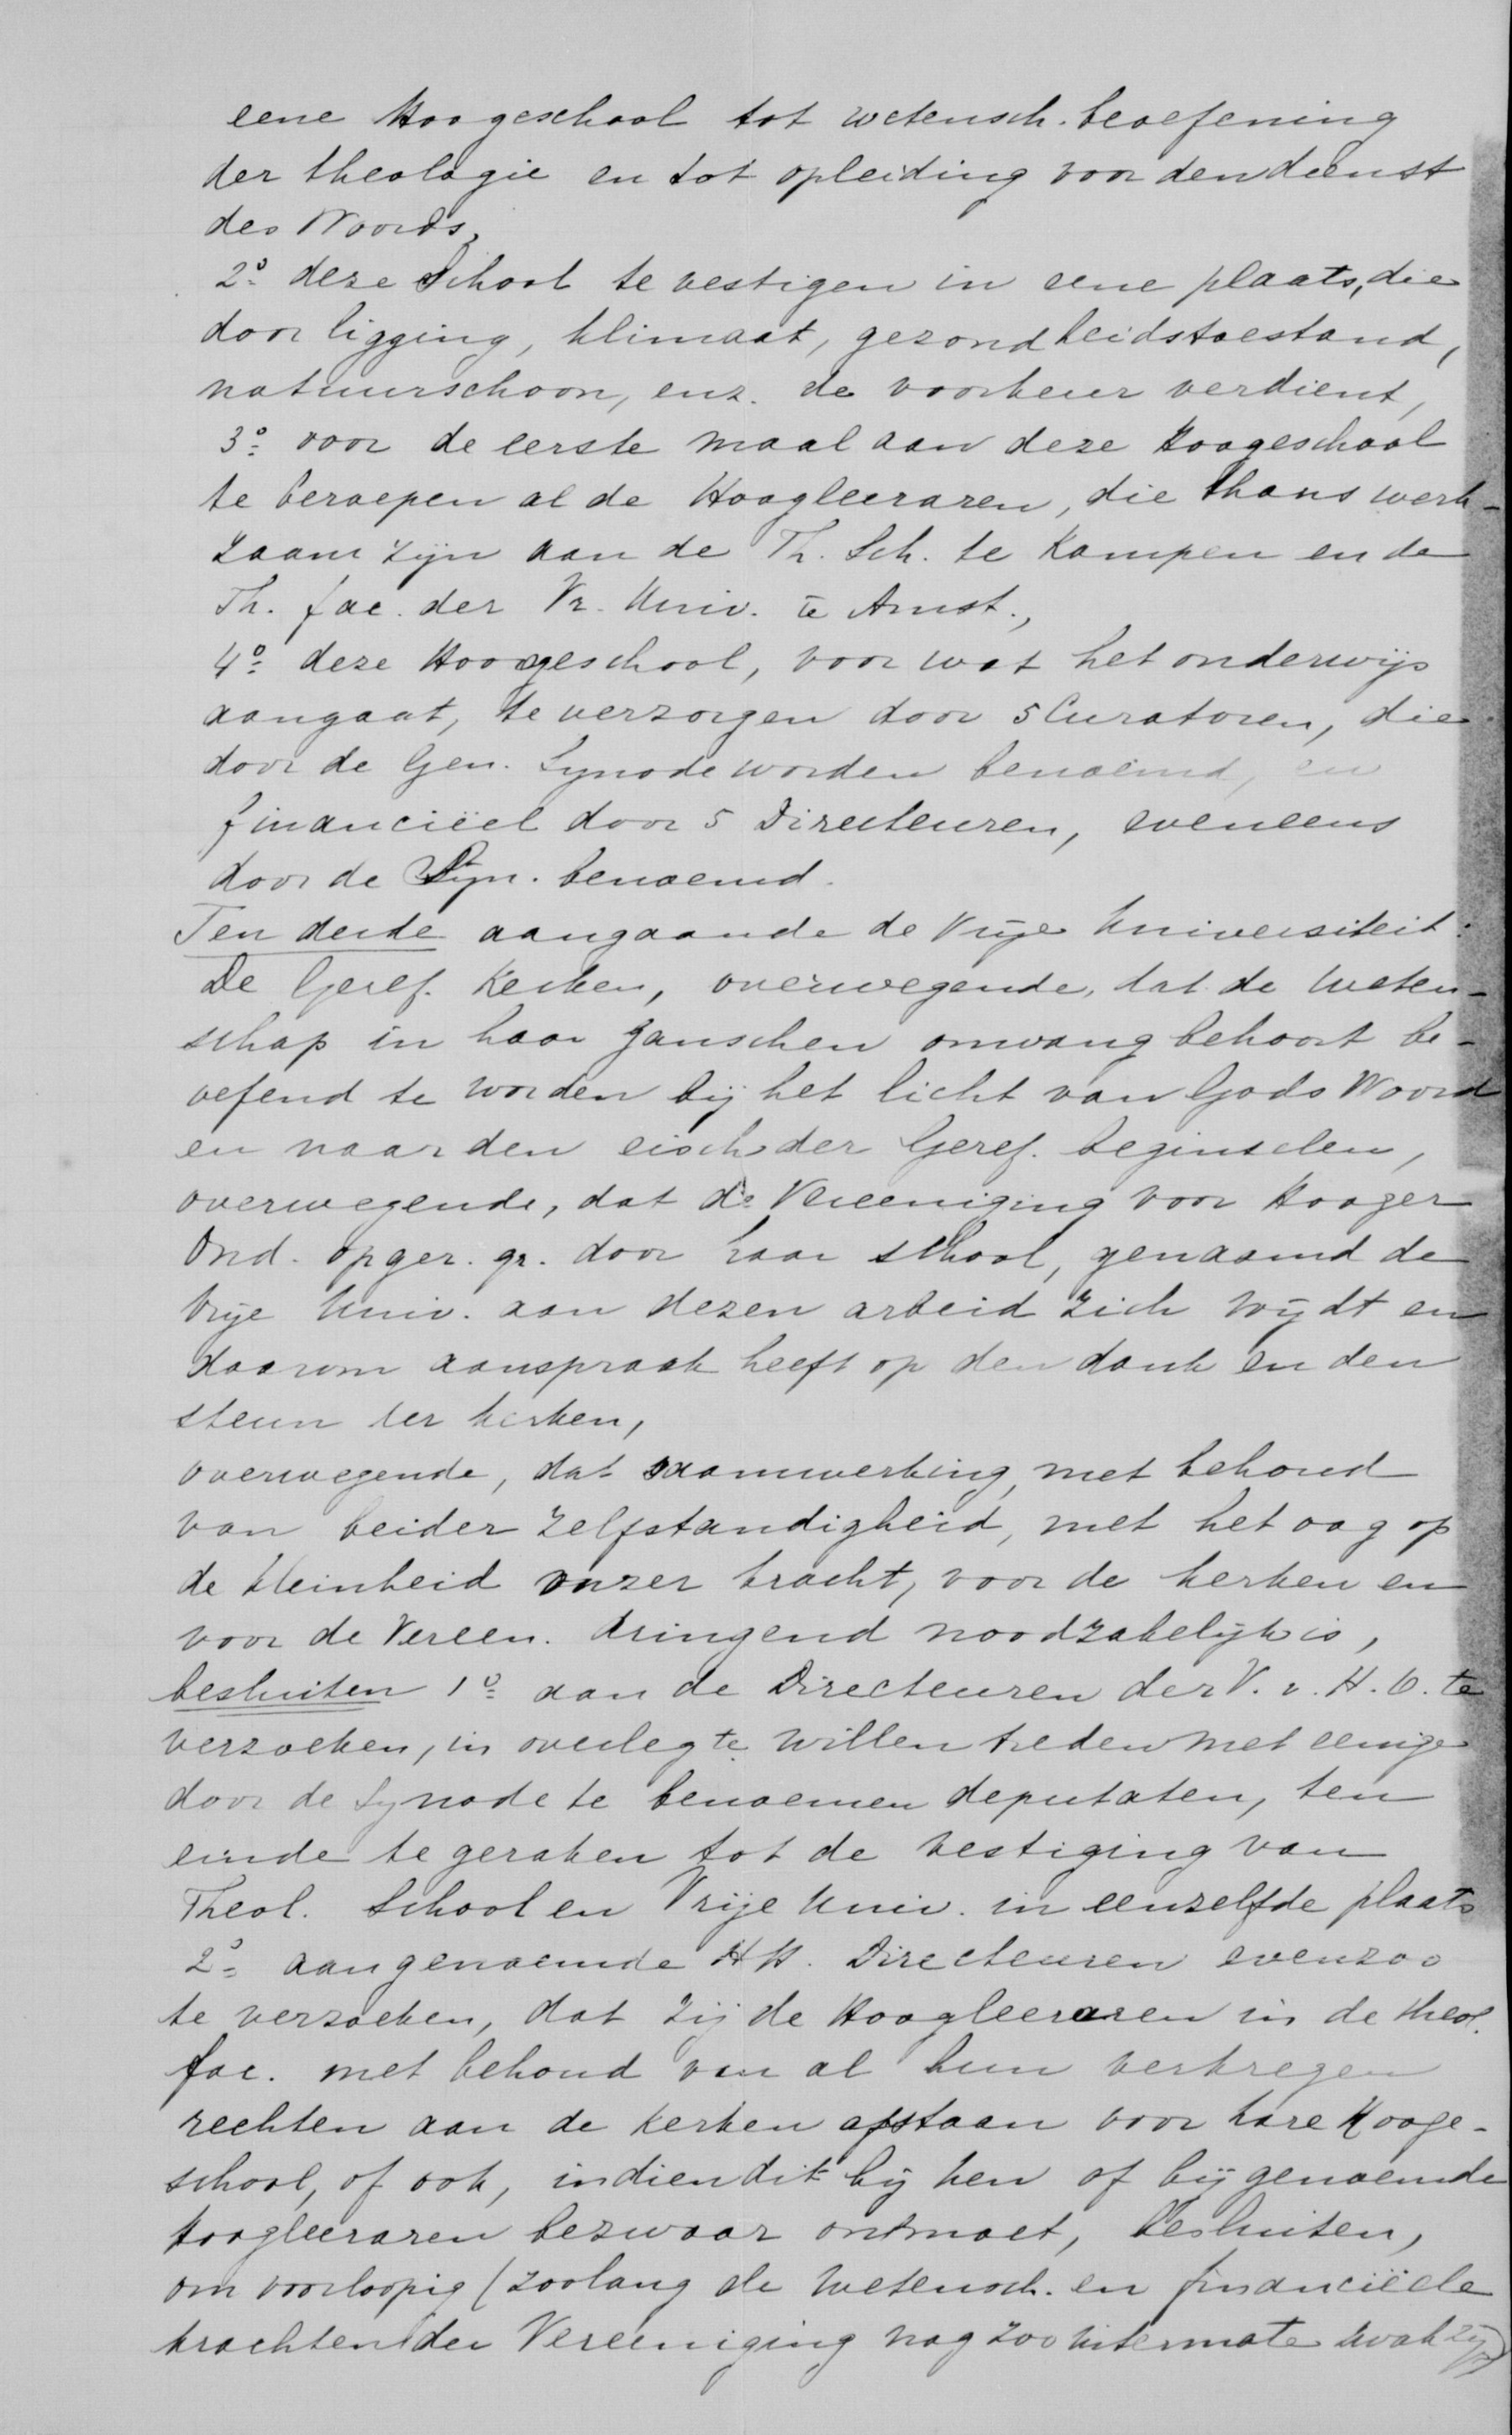 eene Hoogeschool tot wetensch. beoefening
der theologie en tot opleiding voor den dienst
des Woords,
2o. deze School te vestigen in eene plaats, die
door ligging, klimaat, gezondheidstoestand,
natuurschoon, enz. de voorkeur verdient,
3o. voor de eerste maal aan deze Hoogeschool
te beroepen al de Hoogleeraren, die thans werk-
zaam zijn aan de Th. Sch. te Kampen en de
Th. fac. der Vr. Univ. te Amst.,
4o. deze Hoogeschool, voor wat het onderwijs
aangaat, te verzorgen door 5 Curatoren, die
door de Gen. Synode worden benoemd, en
financiëel door 5 Directeuren, eveneens
door de Syn. benoemd.
Ten derde aangaande de Vrije Universiteit:
De Geref. Kerken, overwegende, dat de weten-
schap in haar ganschen omvang behoort be-
oefend te worden bij het licht van Gods Woord
en naar den eisch der Geref. beginselen,
overwegende, dat de Vereeniging voor Hooger
Ond. op ger. gr. door haar school, genaamd de
Vrije Univ. aan dezen arbeid zich wijdt en
daarom aanspraak heeft op den dank en den
steun der kerken,
overwegende, dat saamwerking, met behoud
van beider zelfstandigheid, met het oog op
de kleinheid onzer kracht, voor de kerken en
voor de Vereen. dringend noodzakelijk is,
besluiten 1o. aan de Directeuren der V. v. H. O. te
verzoeken, in overleg te willen treden met eenige
door de Synode te benoemen deputaten, ten
einde te geraken tot de vestiging van
Theol. School en Vrije Univ. in eenzelfde plaats
2o. aan genoemde HH. Directeuren evenzoo
te verzoeken, dat zij de Hoogleeraren in de theol.
fac. met behoud van al hun verkregen
rechten aan de kerken afstaan voor hare Hooge-
school, of ook, indien dit bij hen of bij genoemde
Hoogleeraren bezwaar ontmoet, besluiten,
om voorloopig (zoolang de wetensch. en financiëele
krachten der Vereeniging nog zoo uitermate zwak zijn)